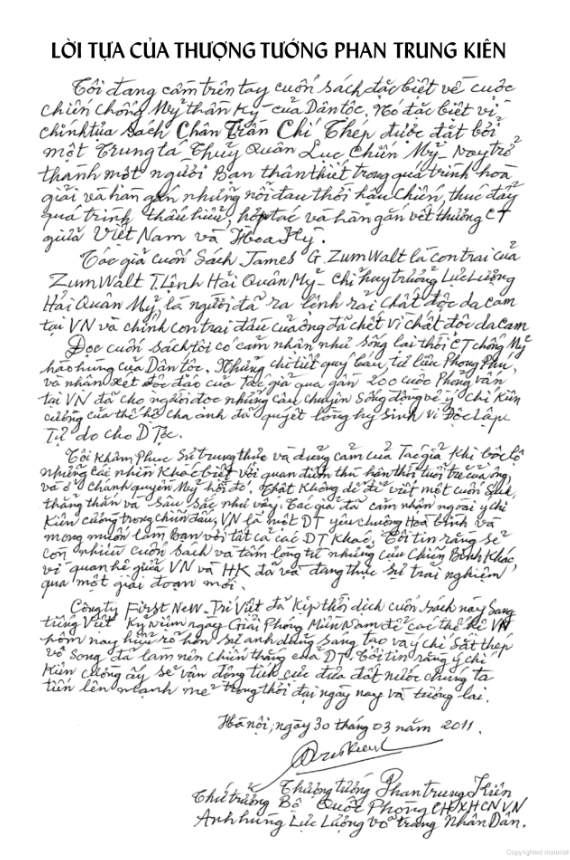 LỜI TỰA CỦA THƯỢNG TƯỚNG PHAN TRUNG KIÊN
Tôi đang cầm trên tay cuốn sách đặc biệt về cuộc
chiến chống Mỹ thần kỳ của Dân tộc. Nó đặc biệt vì
chính tựa sách Chân Trần Chí Thép được đặt bởi
một Trung tá Thủy Quân Lục Chiến Mỹ - nay trở
thành một người Bạn thân thiết trong quá trình hoà
giải và hàn gắn những nỗi đau thời hậu chiến, thúc đẩy
quá trình thấu hiểu, hợp tác và hàn gắn vết thương CT
giữa Việt Nam và Hoa Kỳ.
Tác giả cuốn sách James G. ZumWalt là con trai của
ZumWalt T. Lệnh Hải Quân Mỹ - chỉ huy trưởng Lực Lượng
Hải Quân Mỹ, là người đã ra lệnh rải chất độc da cam
tại VN và chính con trai đầu của ông đã chết vì chất độc da cam
Đọc cuốn sách tôi có cảm nhận như sống lại thời CT chống Mỹ
hào hùng của Dân tộc. Những chi tiết quý báu, tư liệu phong phú,
và nhận xét độc đáo của Tác giả qua gần 200 cuộc phỏng vấn
tại VN đã cho người đọc những câu chuyện sống động về ý chí kiên
cường của thế hệ cha anh đã quyết lòng hy sinh vì Độc lập
Tự do cho D Tộc.
Tôi khâm phục sự trung thực và dũng cảm của Tác giả khi bộc lộ
những cái nhìn khác biệt với quan điểm thù hận thời tuổi trẻ của ông
và ở chánh quyền Mỹ hồi đó. Thật không dễ để viết một cuốn sách
thẳng thắn và sâu sắc như vậy. Tác giả đã cảm nhận ngoài ý chí
kiên cường trong chiến đấu, VN là một DT yêu chuộng Hoà bình và
mong muốn làm bạn với tất cả các DT khác. Tôi tin rằng sẽ
còn nhiều cuốn sách và tấm lòng từ những cựu chiến Binh khác,
vì quan hệ giữa VN và HK đã và đang thực sự trải nghiệm
qua một giai đoạn mới.
Công ty First New - Trí Việt đã kịp thời dịch cuốn sách này sang
tiếng Việt kỷ niệm ngày Giải Phóng Miền Nam để các thế hệ VN
hôm nay hiểu rõ hơn sự anh dũng sáng tạo và ý chí sắt thép
vô song đã làm nên chiến thắng của DT. Tôi tin rằng ý chí
kiên cường ấy sẽ vận động tích cực đưa đất nước chúng ta
tiến lên mạnh mẽ trong thời đại ngày nay và tương lai.
Hà nội, ngày 30 tháng 03 năm 2011.
Thượng tướng Phan trung Kiên
Thứ trưởng Bộ Quốc Phòng CHXHCNVN
Anh hùng Lực Lượng vũ trang Nhân Dân.
Copyrighted material